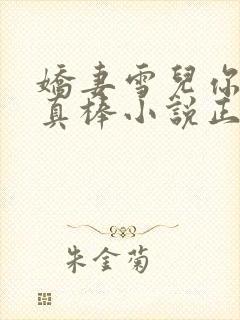 嬌妻雪兒你
真棒小說正
朱金菊